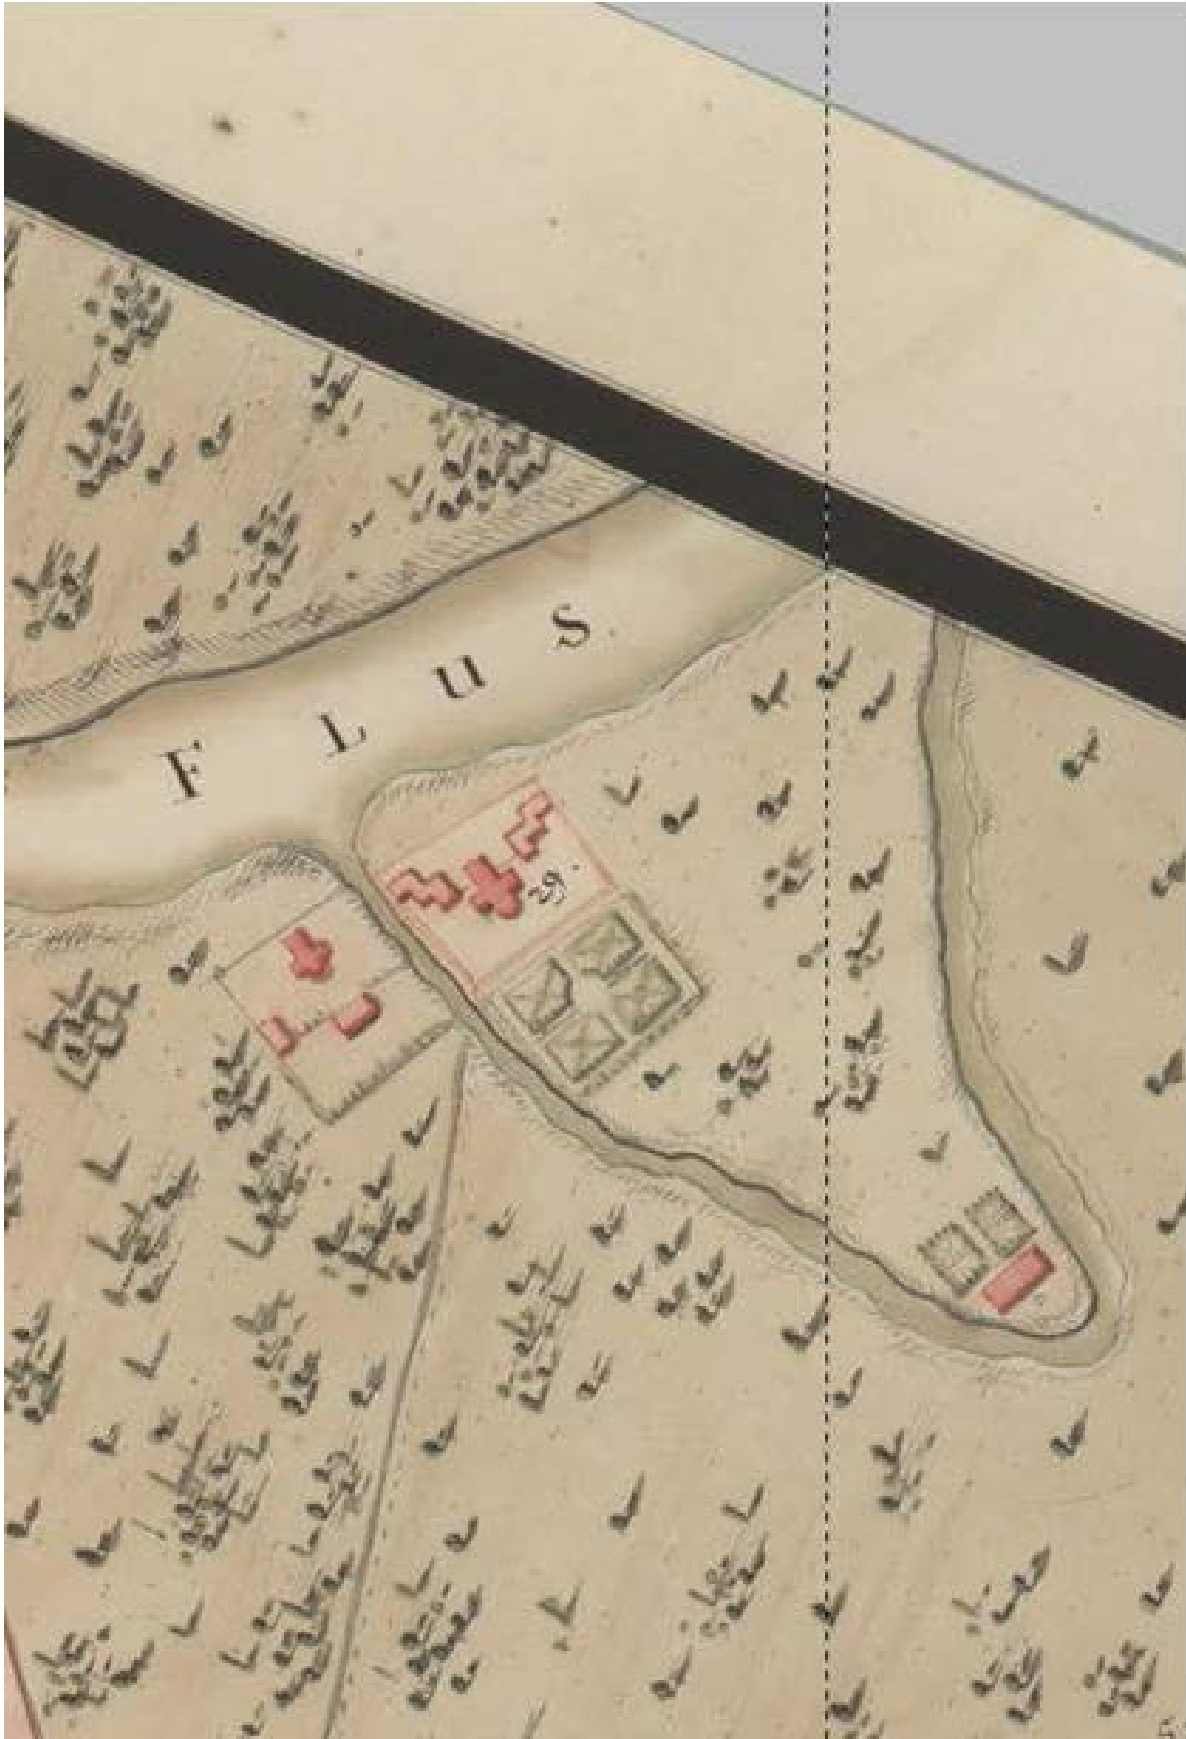 FLUS
29.